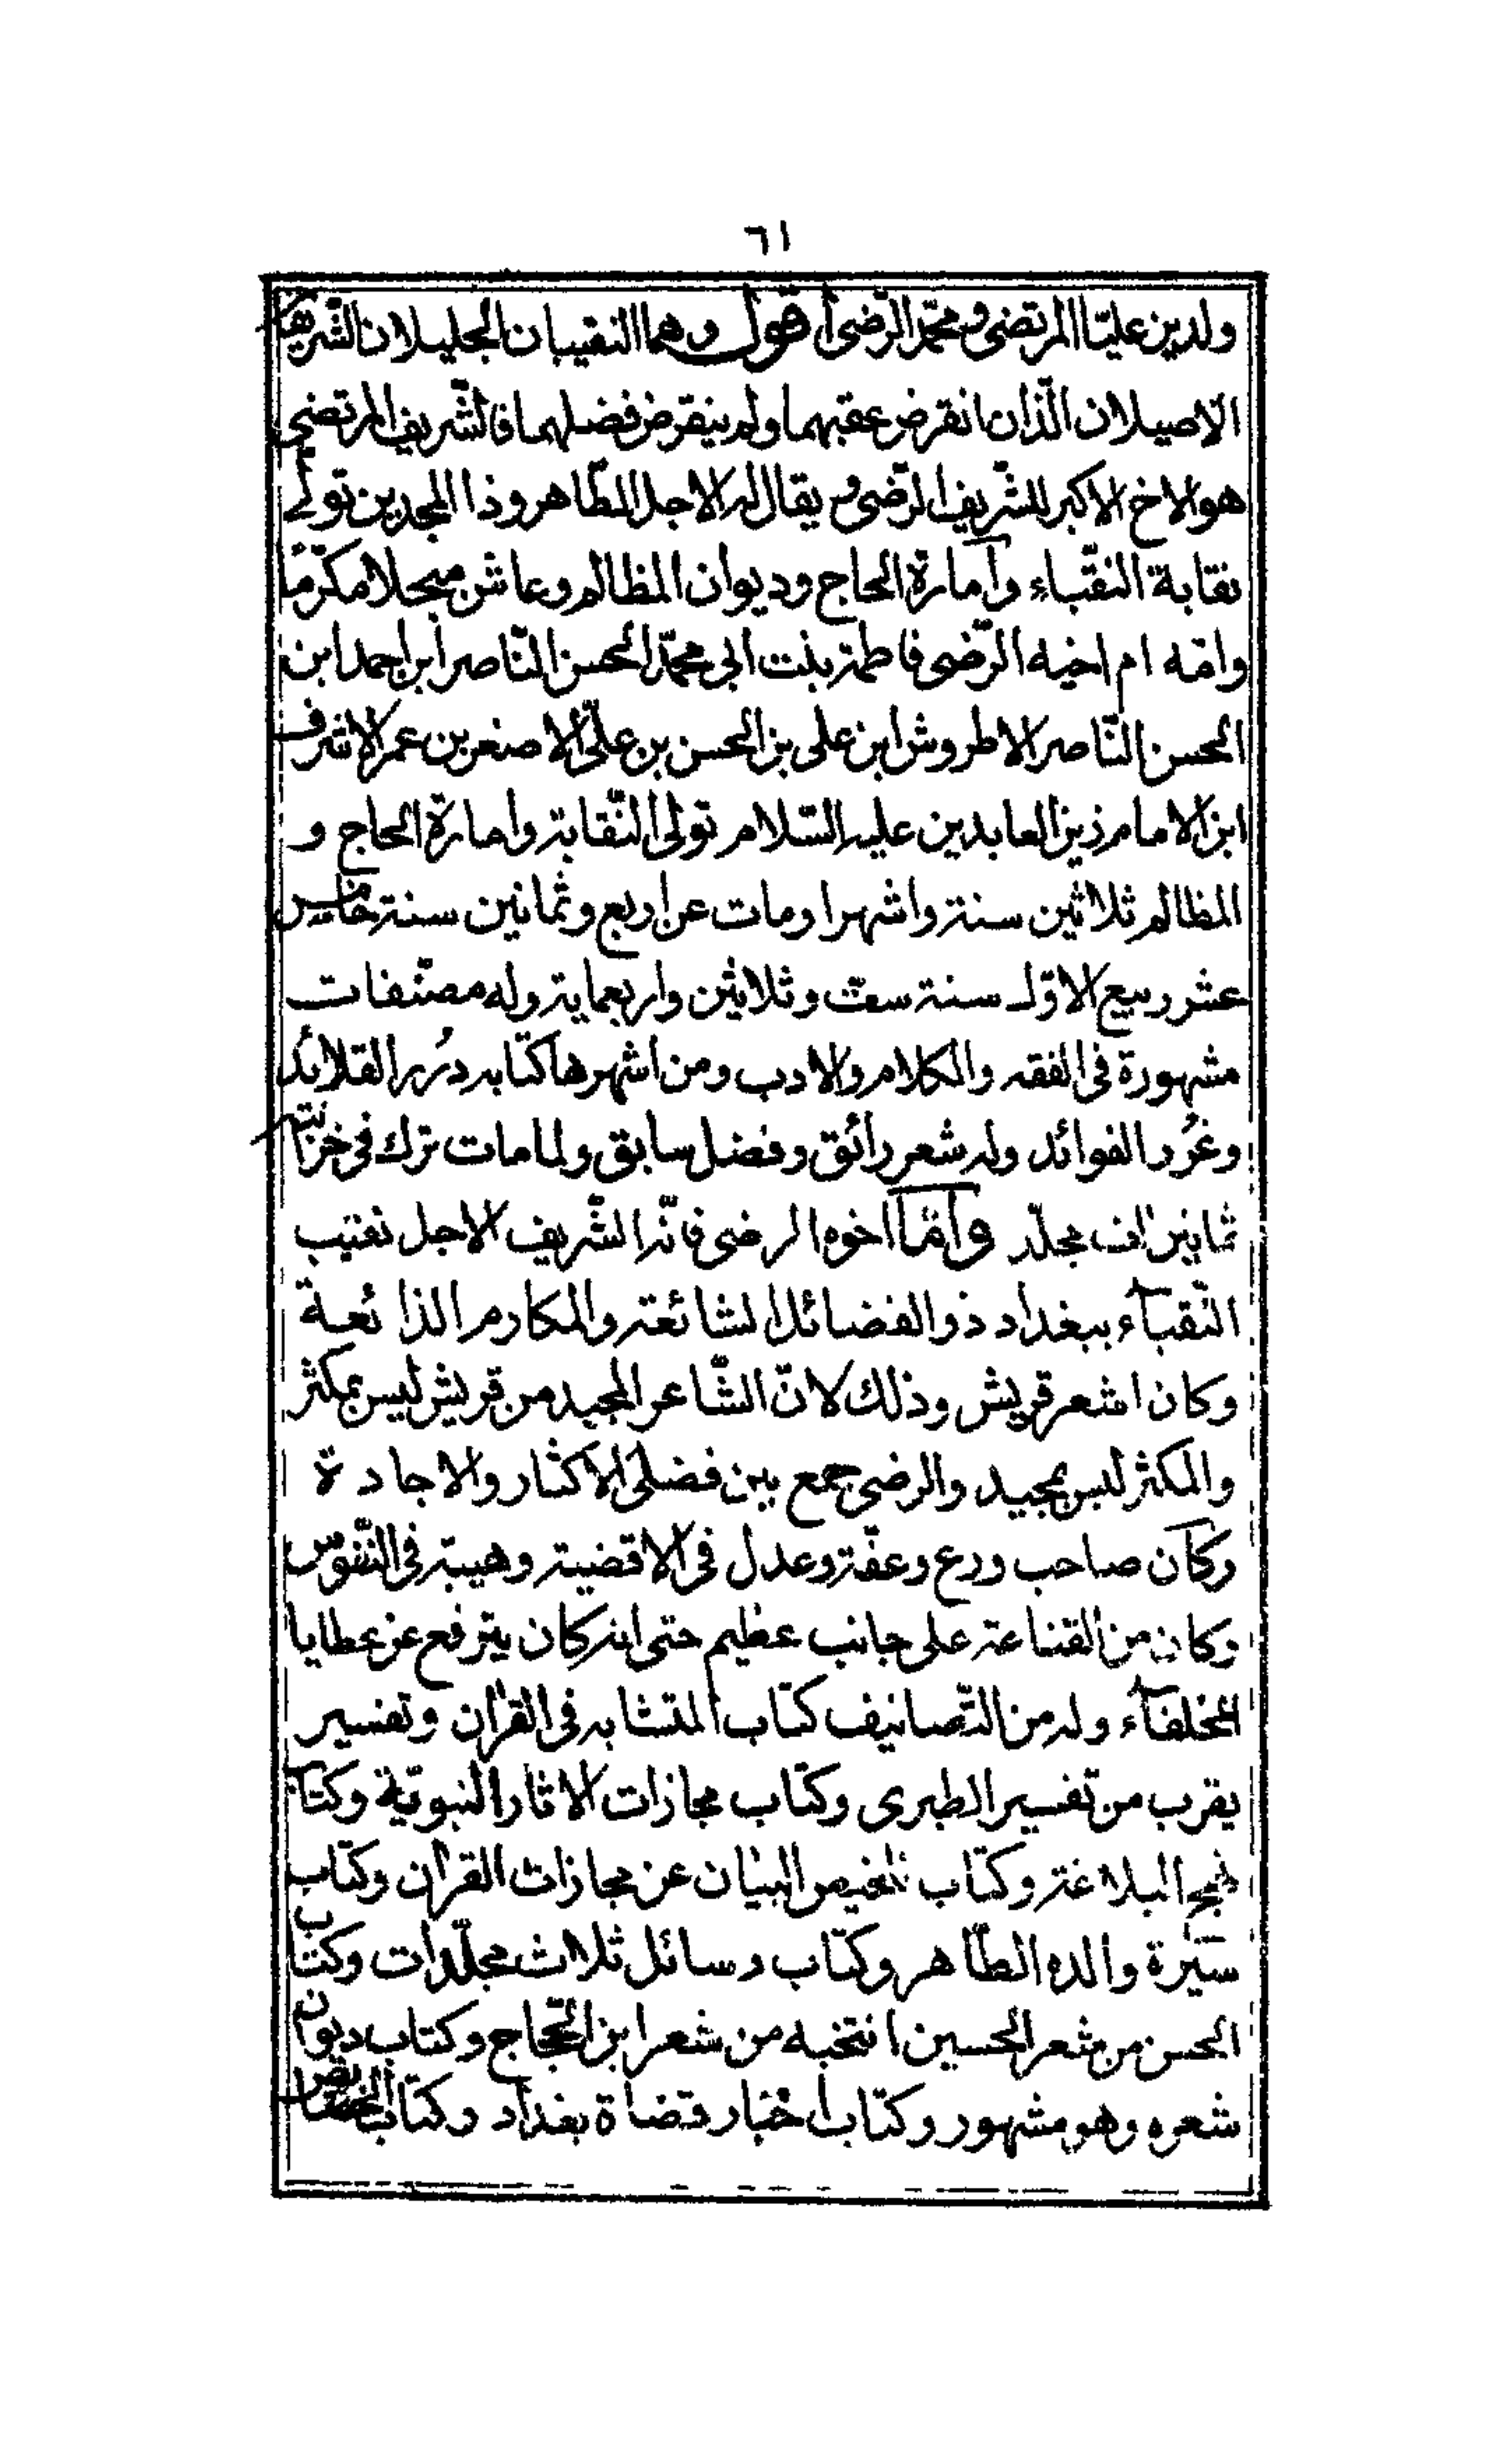 ٦١
ولدين عليّا المرتضى ومحمّد الرّضى أقول وهما النقيبان الجليلان الشّريفان
الاصيلان الّذان انقرض عقبهما ولم ينقرض فضلهما فالشّريف المرتضى
هو الاخ الاكبر للشّريف الرّضى ويقال له الاجل الطّاهر وذا المجدين تولّى
نقابة النقّباء وآمارة الحاج وديوان المظالم وعاش مبجلا مكرّمًا
وامّه ام اخيه الرّضى فاطمة بنت ابى محمّد الحسن النّاصر ابن احمد ابن
الحسن النّاصر الاطروش ابن على بن الحسن بن علىّ الاصغر بن عمر الاشرف
ابن الامام زين العابدين عليه السّلام تولى النّقابة وامارة الحاج و
المظالم ثلاثين سنة واشهرا ومات عن اربع وثمانين سنة خامس
عشر ربيع الاوّل سنة ستّ وثلاثين واربعماية وله مصنّفات
مشهورة فى الفقه والكلام والادب ومن اشهرها كتابه دُرر القلائد
وغُرر الفوائد وله شعر رائق وفضل سابق ولما مات ترك فى خزانته
ثمانين الف مجلّد وآمّا اخوه الرضى فانّه الشّريف الاجل نقيب
النّقبآء ببغداد ذو الفضائل الشائعة والمكارم الذائعة
وكان اشعر قريش وذلك لانّ الشّاعر المجيد من قريش ليس بمكثر
والمكثر ليس بمجيد والرضى جمع بين فضلى الاكثار والاجادة
وكان صاحب ورع وعفّة وعدل فى الاقضية وهيبة فى النّفوس
وكان من القناعة على جانب عظيم حتى انه كان يترفع عن عطايا
الخلفآء وله من التّصانيف كتاب المتشابه فى القرآن وتفسير
يقرب من تفسير الطبرى وكتاب مجازات الاثار النبويّة وكتاب
نهج البلاغة وكتاب تلخيص البيان عن مجازات القرآن وكتاب
سيرة والده الطّاهر وكتاب رسائل ثلاث مجلّدات وكتاب
الحسن من شعر الحسين انتخبه من شعر ابن الحّجاج وكتاب ديوان
شعره وهو مشهور وكتاب اخبار قضاة بغداد وكتاب الخصائص